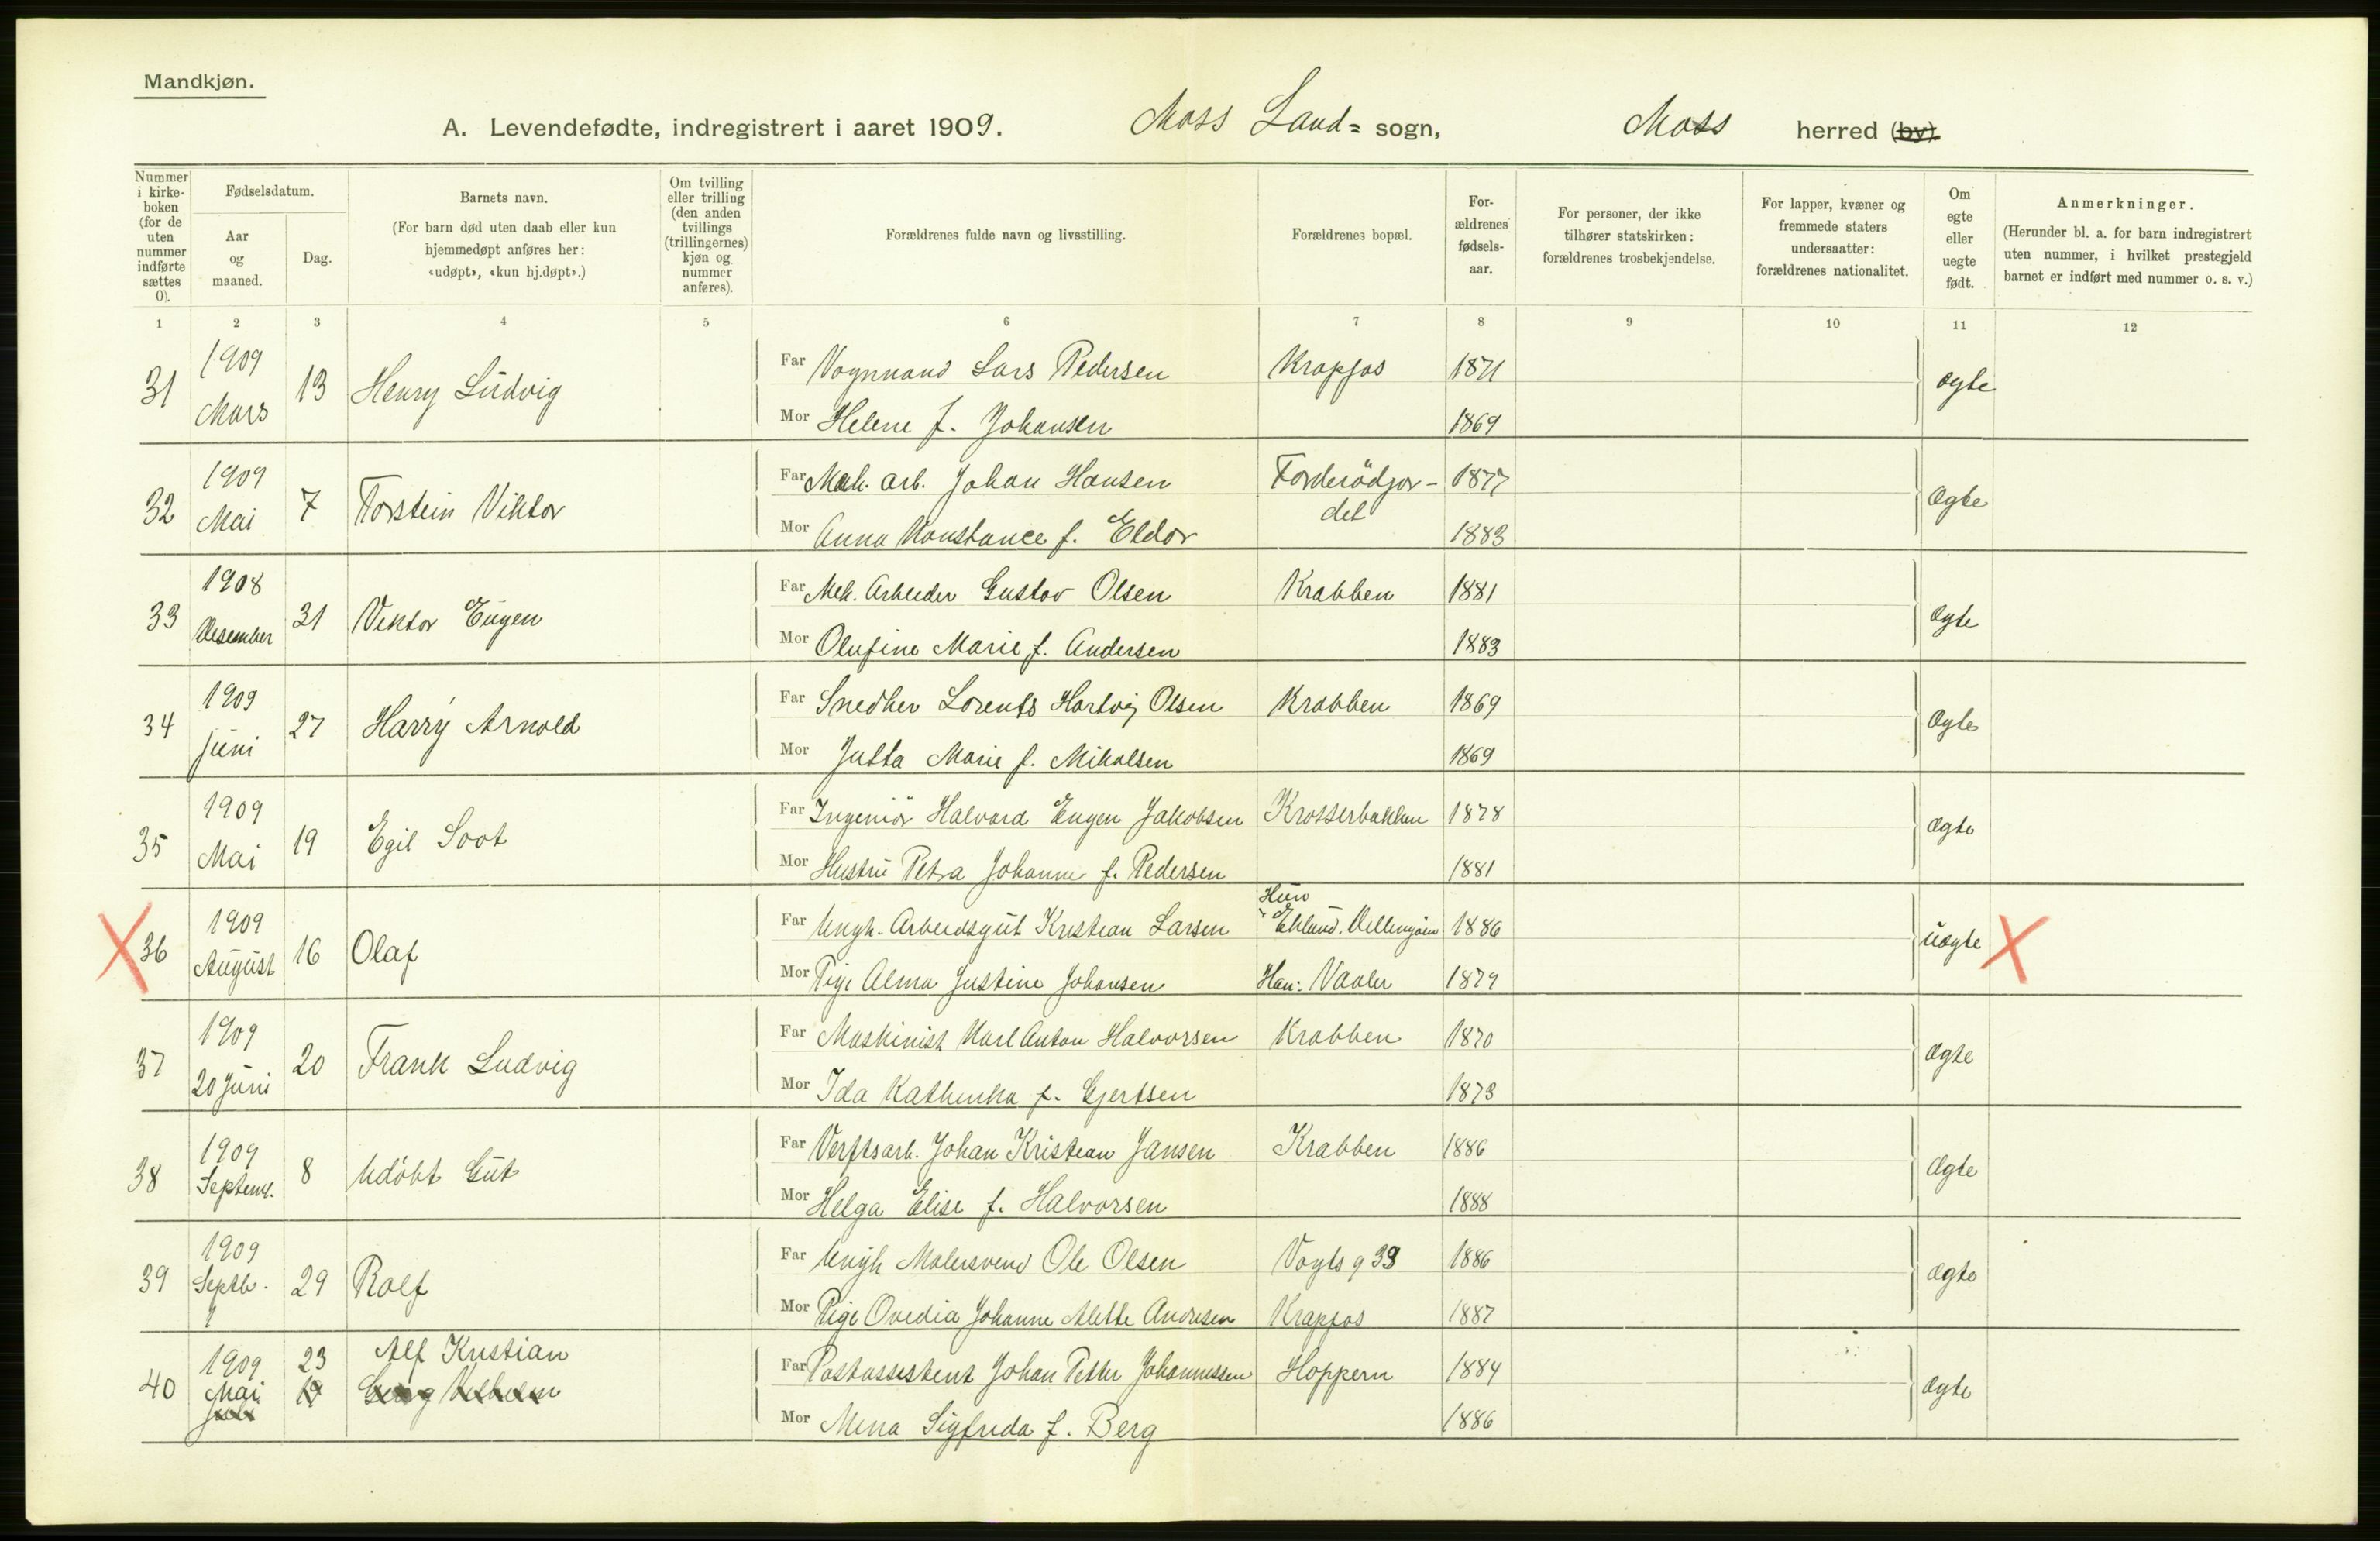 Mandkjøn.
A. Levendefødte, indregistrert i aaret 1909. Moss Land= sogn, Moss herred (by).
Nummer i kirke-boken (for de uten nummer indførte sættes 0).
Fødselsdatum.
Aar og maaned.
Dag.
Barnets navn.
(For barn død uten daab eller kun hjemmedøpt anføres her: «udøpt», «kun hj.døpt».)
Om tvilling eller trilling (den anden tvillings (trillingernes) kjøn og nummer anføres).
Forældrenes fulde navn og livsstilling.
Forældrenes bopæl.
For-ældrenes fødsels-aar.
For personer, der ikke tilhører statskirken: forældrenes trosbekjendelse.
For lapper, kvæner og fremmede staters undersaatter: forældrenes nationalitet.
Om egte eller uegte født.
Anmerkninger.
(Herunder bl. a. for barn indregistrert uten nummer, i hvilket prestegjeld barnet er indført med nummer o. s. v.)
1 2 3 4 5 6 7 8 9 10 11 12
31 1909 Mars 13 Henry Ludvig Far Vognmand Lars Pedersen Krapfos 1871 ægte
Mor Helene f. Johansen 1869
32 1909 Mai 7 Torstein Viktor Far Mek. arb. Johan Hansen Torderödjor-det 1877 Ægte
Mor Anna Konstance f. Eldor 1883
33 1908 Desember 31 Viktor Eugen Far Mek. Arbeider Gustav Olsen Krabben 1881 Ægte
Mor Olufine Marie f. Andersen 1883
34 1909 Juni 27 Harry Arnold Far Snedker Lorents Hartvig Olsen Krabben 1869 Ægte
Mor Jutta Marie f. Mikalsen 1869
35 1909 Mai 19 Egil Soot Far Ingeniör Halvard Eugen Jakobsen Krosserbakken 1878 Ægte
Mor Hustru Petra Johanne f. Pedersen 1881
36 1909 August 16 Olaf Far Ungk. Arbeidsgut Kristian Larsen Hun Eklund. 1886 uægte
Mor Pige Alma Justine Johansen Han: Vaaler 1879
37 1909 20 Juni 20 Frank Ludvig Far Maskinist Karl Anton Halvorsen Krabben 1870 Ægte
Mor Ida Kathinka f. Gjertsen 1873
38 1909 Septemb. 8 Udöbt Gut Far Verftsarb. Johan Kristian Jansen Krabben 1886 Ægte
Mor Helga Elise f. Halvorsen 1888
39 1909 Septb. 29 Rolf Far Ungk Malersvend Ole Olsen Vogts g 39 1886 ægte
Mor Pige Ovedia Johanne Alette Andresen Krapfos 1887
40 1909 Mai Juli 23 19 Alf Kristian Georg Vilhelm Far Postassistent Johan Petter Johannessen Hoppern 1884 Ægte
Mor Mina Sigfrida f. Berg 1886